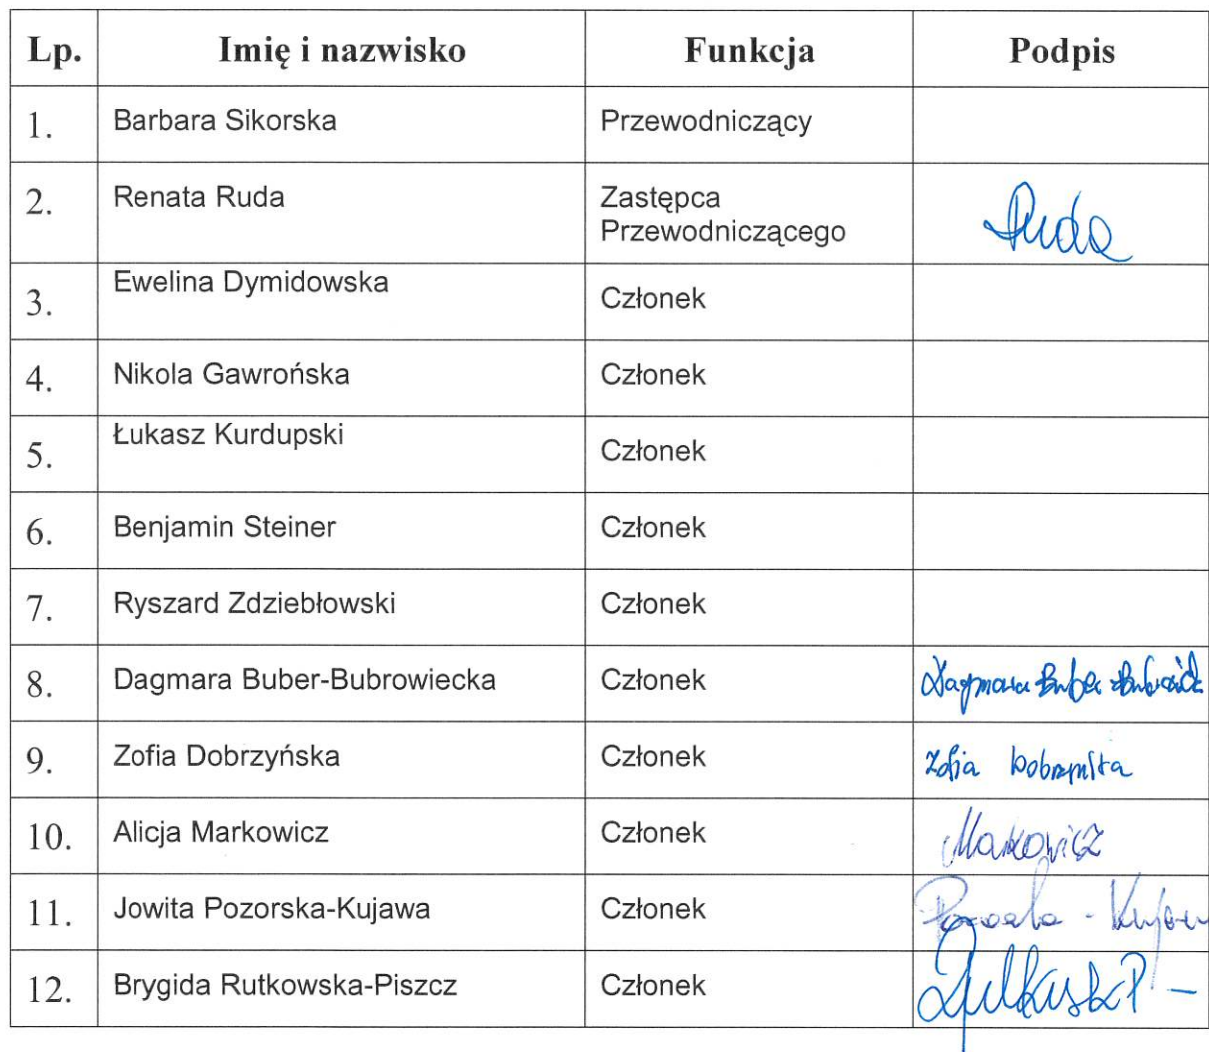 Lp. Imię i nazwisko Funkcja Podpis
1. Barbara Sikorska Przewodniczący
2. Renata Ruda Zastępca
Przewodniczącego Ruda
3. Ewelina Dymidowska Członek
4. Nikola Gawrońska Członek
5. Łukasz Kurdupski Członek
6. Benjamin Steiner Członek
7. Ryszard Zdziebłowski Członek
8. Dagmara Buber-Bubrowiecka Członek Dagmara Buber
9. Zofia Dobrzyńska Członek Zofia
10. Alicja Markowicz Członek Markowicz
11. Jowita Pozorska-Kujawa Członek
12. Brygida Rutkowska-Piszcz Członek